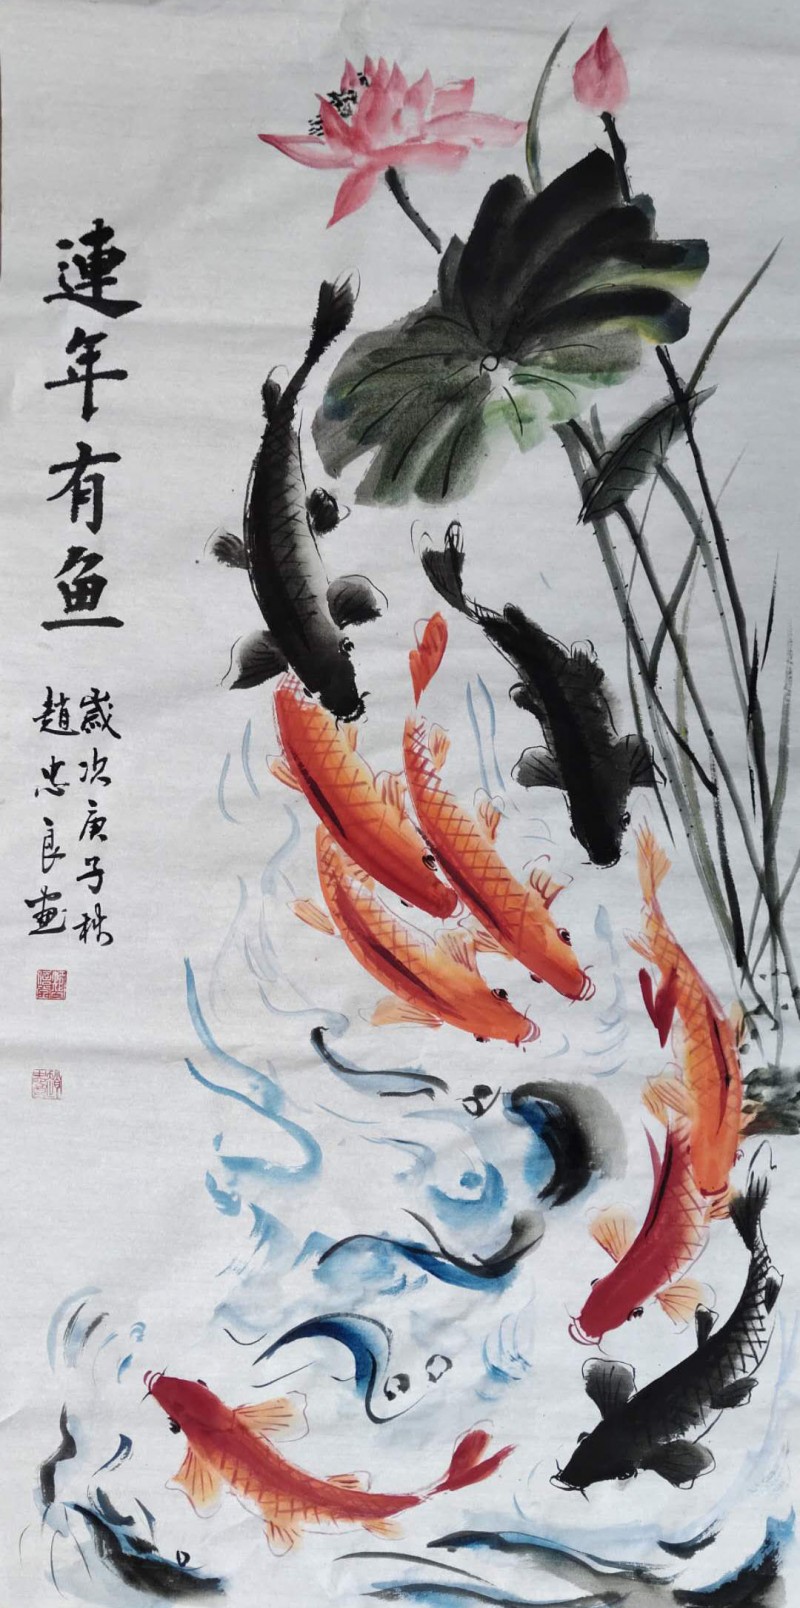 連年有鱼
歲次庚子秋
趙忠良畫